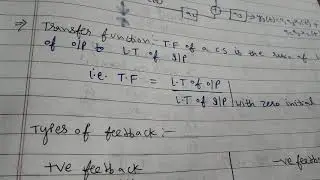 ⇒ Transfer function:- T.F of a CS is the
of O/P to L.T of I/P
i.e. T.F = L.T of O/P
L.T of I/P | with zero initial
Types of feedback:-
+ve feedback
-ve feedb